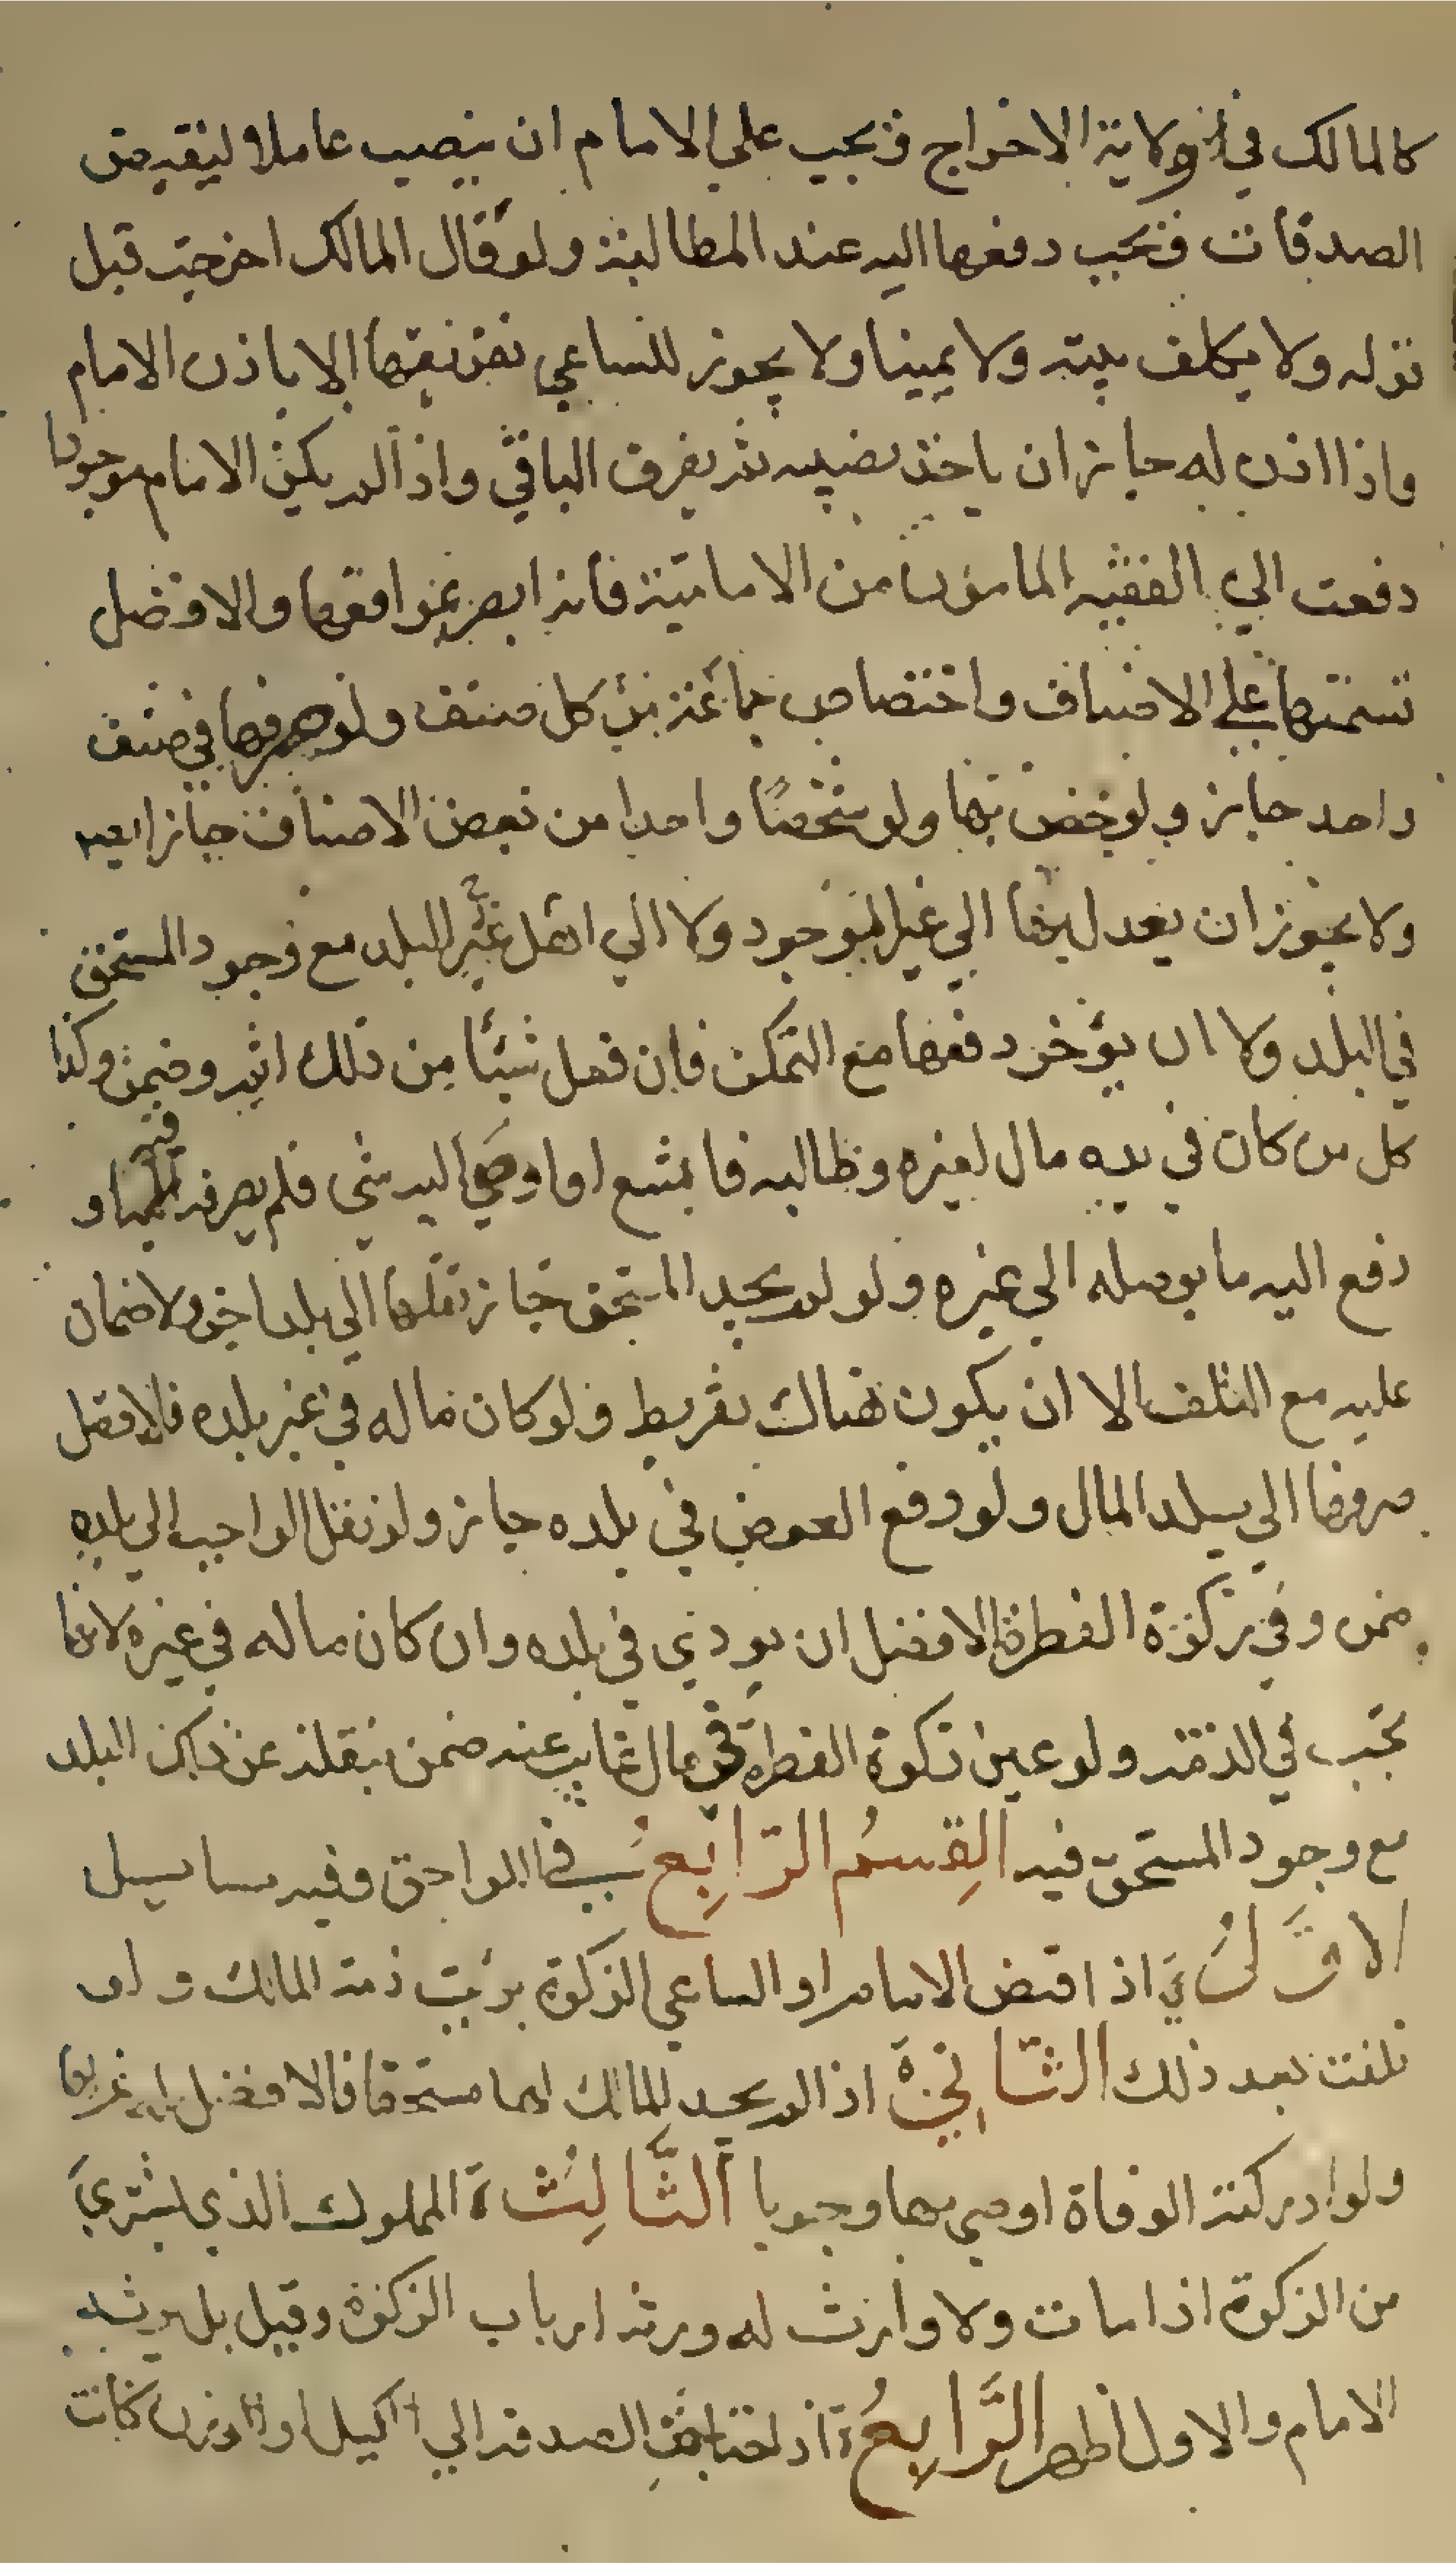 كالمالك في ولاية الاخراج و يجب علي الامام ان ينصب عاملا ليقبض
الصدقات فيجب دفعها اليه عند المطالبة ولو قال المالك اخرجت قبل
قوله ولا يكلف بينة ولا يمينا ولا يجوز للساعي تفريقها الا باذن الامام
واذا اذن له جاز ان ياخذ نصيبه ثم يفرق الباقي واذا لم يكن الامام موجودا
دفعت الي الفقيه المامون من الامامية فانه ابصر بمواقعها والافضل
قسمتها علي الاصناف واختصاص جماعة من كل صنف ولو صرفها في صنف
واحد جاز ولو خص بها ولو شخصا واحدا من بعض الاصناف جاز ايضا
ولا يجوز ان يعدل بها الي غير الموجود ولا الي اهل غير البلد مع وجود المستحق
في البلد ولا ان يؤخر دفعها مع التمكن فان فعل شيئا من ذلك اثم وضمن وكذا
كل من كان في يده مال لغيره وطالبه فامتنع او اوصي اليه شي فلم يصرفه فيه او
دفع اليه ما يوصله الي غيره ولو لم يجد المستحق جاز نقلها الي بلد اخر ولا ضمان
عليه مع التلف الا ان يكون هناك تفريط ولو كان ماله في غير بلده فالافضل
صرفها الي بلد المال ولو دفع العوض في بلده جاز ولو نقل الواجب الي بلده
ضمن وفي زكوة الفطرة الافضل ان يودي في بلده وان كان ماله في غيره لانها
تجب في الذمة ولو عين زكوة الفطرة في مال غايب عنه ضمن بنقله عن ذلك البلد
مع وجود المستحق فيه القسم الرابع في اللواحق وفيه مسايل
الاولي اذا قبض الامام او الساعي الزكوة برئت ذمة المالك و لو
تلفت بعد ذلك الثانية اذا لم يجد المالك لها مستحقا فالافضل له عزلها
ولو ادركته الوفاة اوصي بها وجوبا الثالثة المملوك الذي يشتري
من الزكوة اذا مات ولا وارث له ورثه ارباب الزكوة وقيل بل يرثه
الامام والاول اظهر الرابعة اذا احتاجت الصدقة الي كيل او وزن كانت